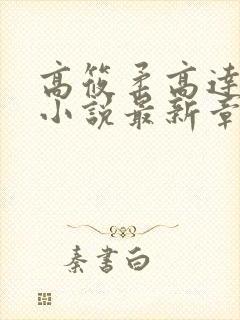 高筱柔高達
小說最新章
秦書白